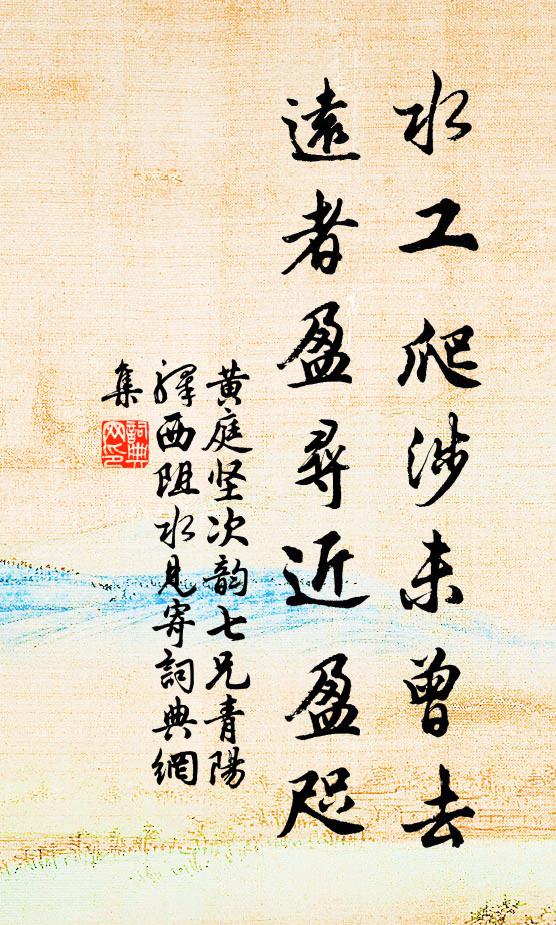 水工爬涉未曾去
遠者盈尋近盈咫
黄庭坚次韵七兄青陽
驛西阻水見寄詞典網
集
詞典网印